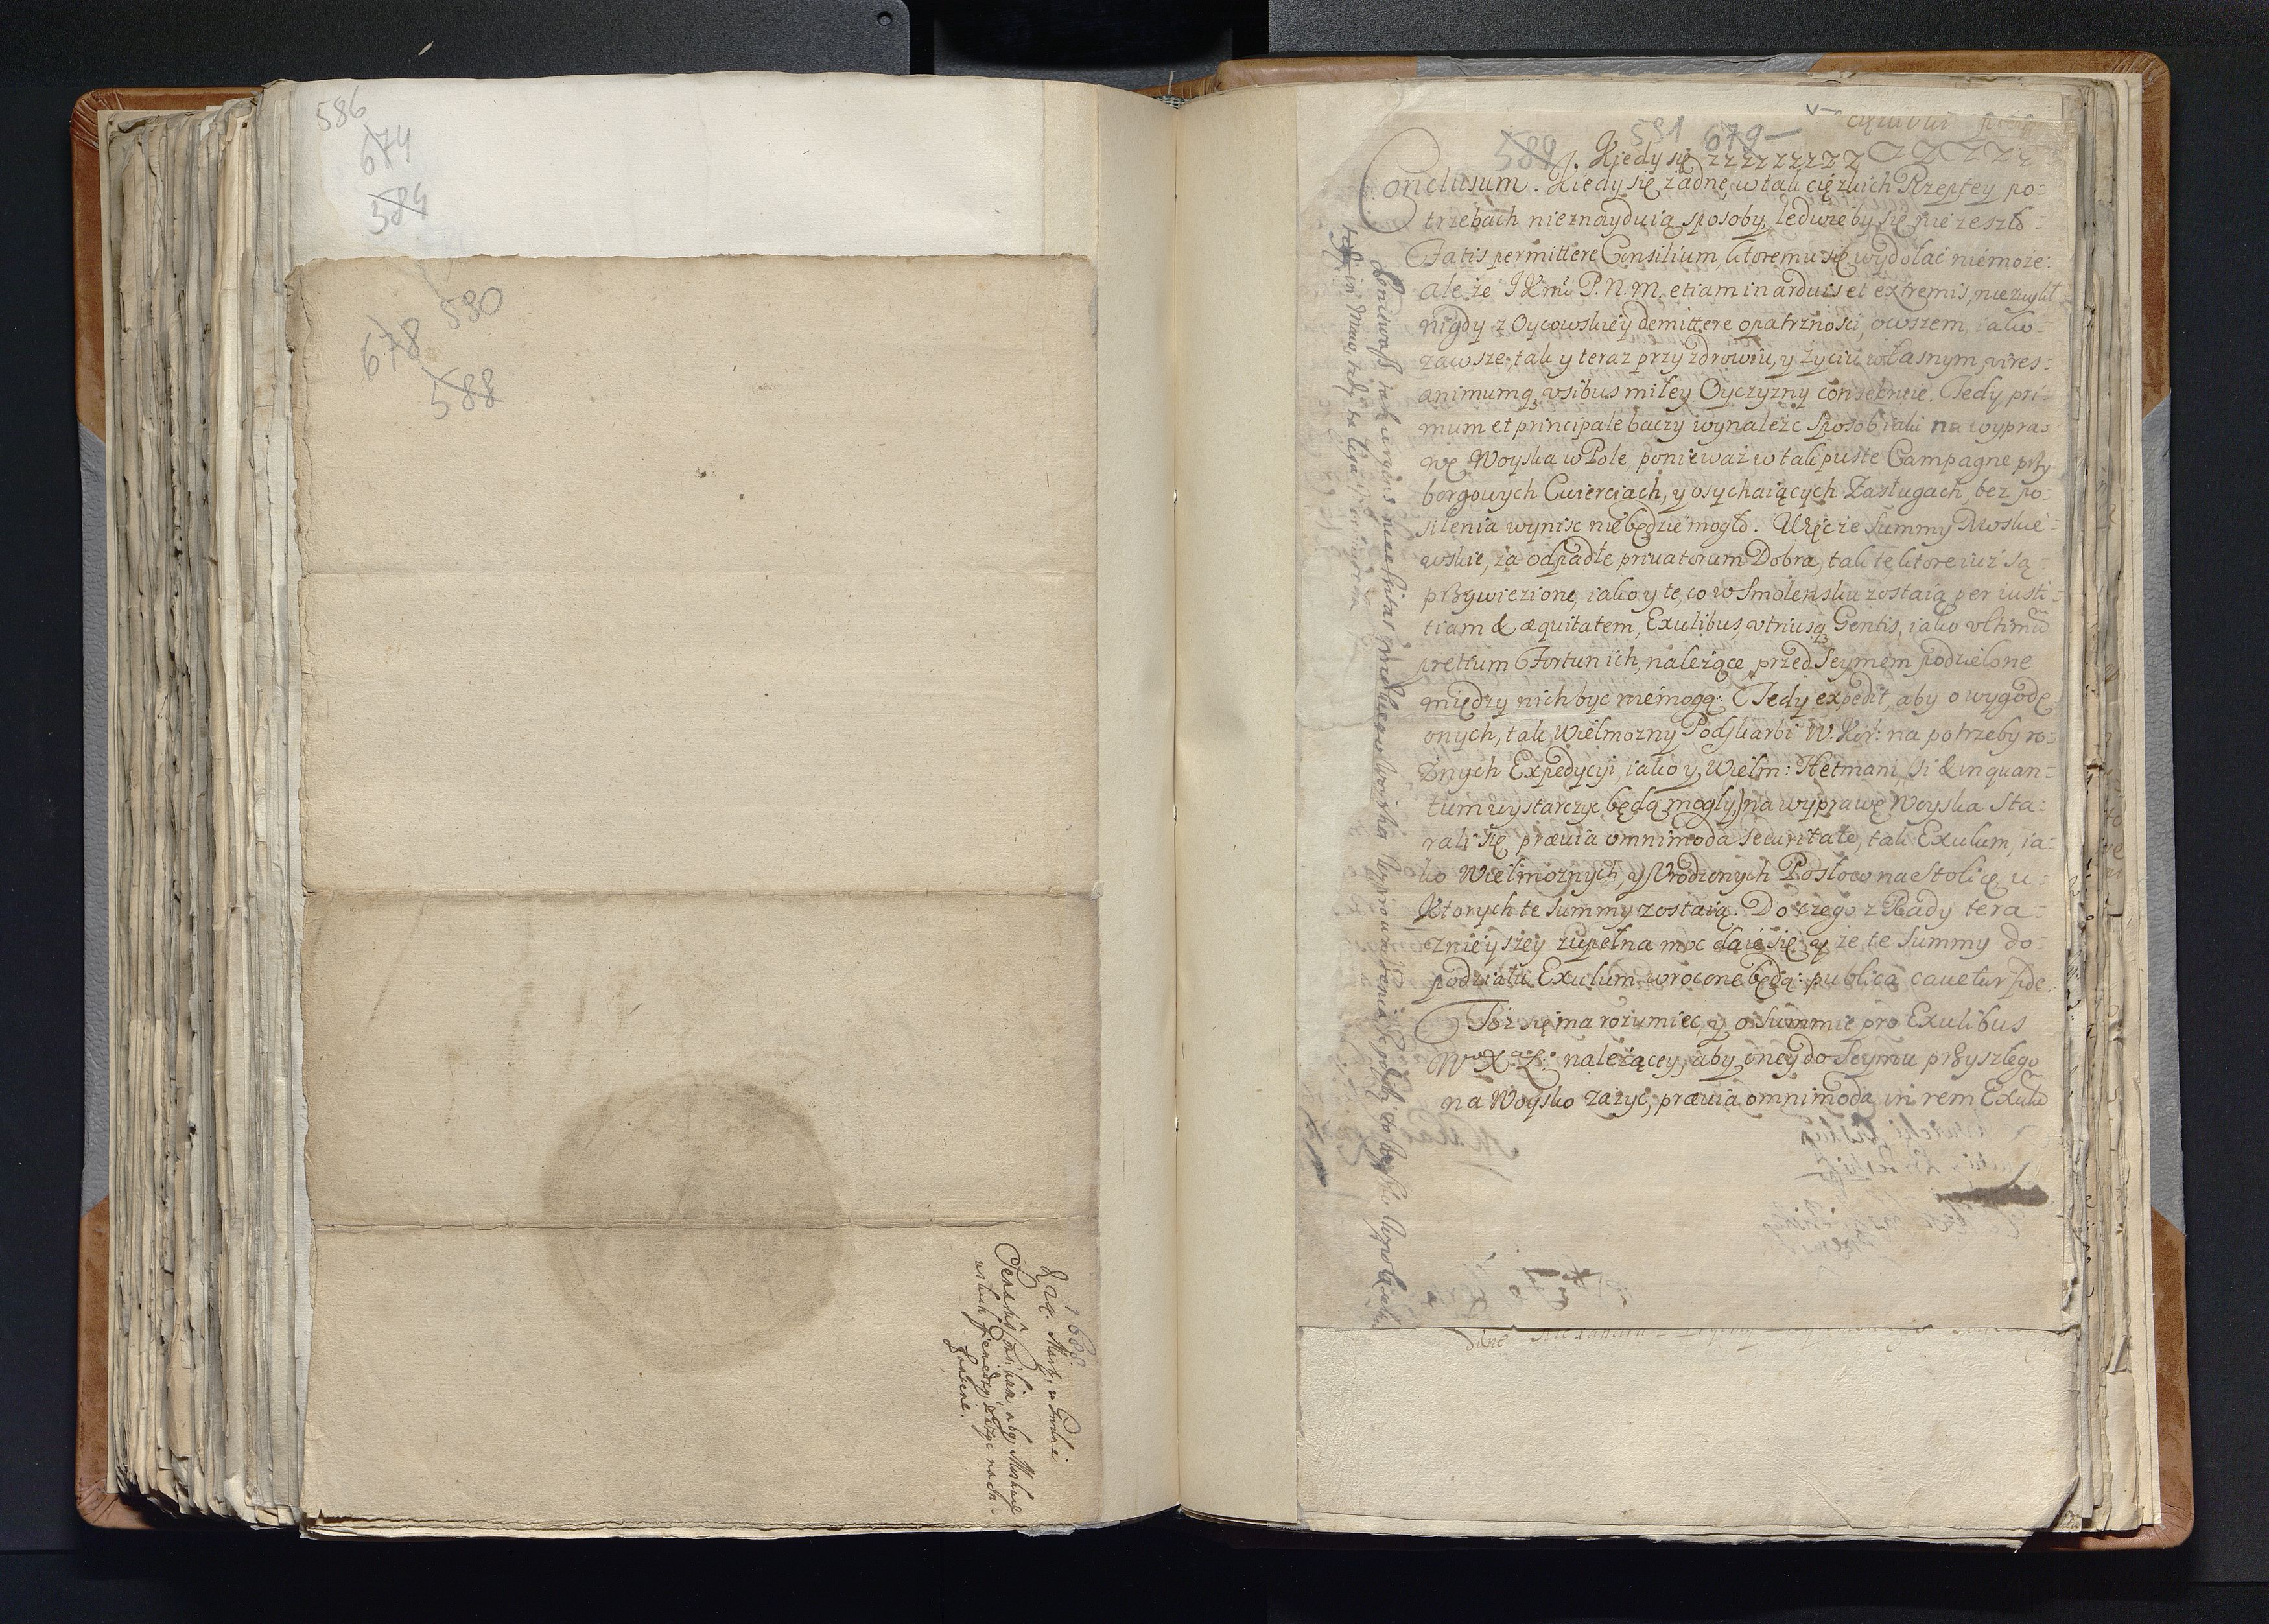 586
674
584
590
678
588
1668.
Martij w Grodnie
Senatus Consilium, aby Moskiewskich pieniędzy
589 591 679
J. Kiedy się zzzzzzzzz
Conclusum. Kiedy się żadne, w tak cięzkich Rzeptey po:
trzebach nieznayduią sposoby, ledwieby się nie zeszło
Fatis permittere Consilium, ktoremu się wydołać niemoże:
ale że JKmć P. N. M. etiam in arduis et extremis, niezwykł
nigdy z Oycowskiey demittere opatrznosci, owszem iako
zawsze, tak y teraz przy zdrowiu, y życiu własnym, vires
animumq vsibus miłey Oyczyzny consecruie. Tedy pri:
mum et principale baczy wynaleźc sposob iaki na wypra:
wę Woyska w Pole, ponieważ w tak puste Campagne przy
borgowych Cwierciach, y osychaiących Zasługach, bez po:
silenia wynisc niebędzie mogło. Więc że Summy Moskie
wskie, za odpadłe priuatorum Dobra, tak te ktore iuż są
przywiezione, iako y te, co w Smolensku zostaią per iusti
tiam & æquitatem, Exulibus vtriusq Gentis, iako vltimũ
pretium Fortun ich, należące, przed Seymem podzielone
między nich byc niemogą: Tedy expedit, aby o wygodę
onych, tak Wielmozny Podskarbi W. Kor: na potrzeby ro:
żnych Expedycyi, iako y Wielm: Hetmani (si & inquan:
tum wystarczyc będą mogły) na wyprawę Woyska sta:
rali się, præuia omnimoda securitate, tak Exulum, ia:
ko Wielmoznych, y Vrodzonych Posłow na Stolicę u
ktorych te Summy zostaią. Do czego z Rady tera
znieyszey zupełna moc daie się: y że te Summy do
podziału Exulum wrocone będą: publica cauetur fide.
Toż się ma rozumiec, y o Summie pro Exulibus
W X L: należącey, aby oney do Seymu przyszłego
na Woysko zażyc, præuia omnimoda in rem Exulũ
Ponieważ tak urgens necessitas prędkiego Woyska wyprowadzenia